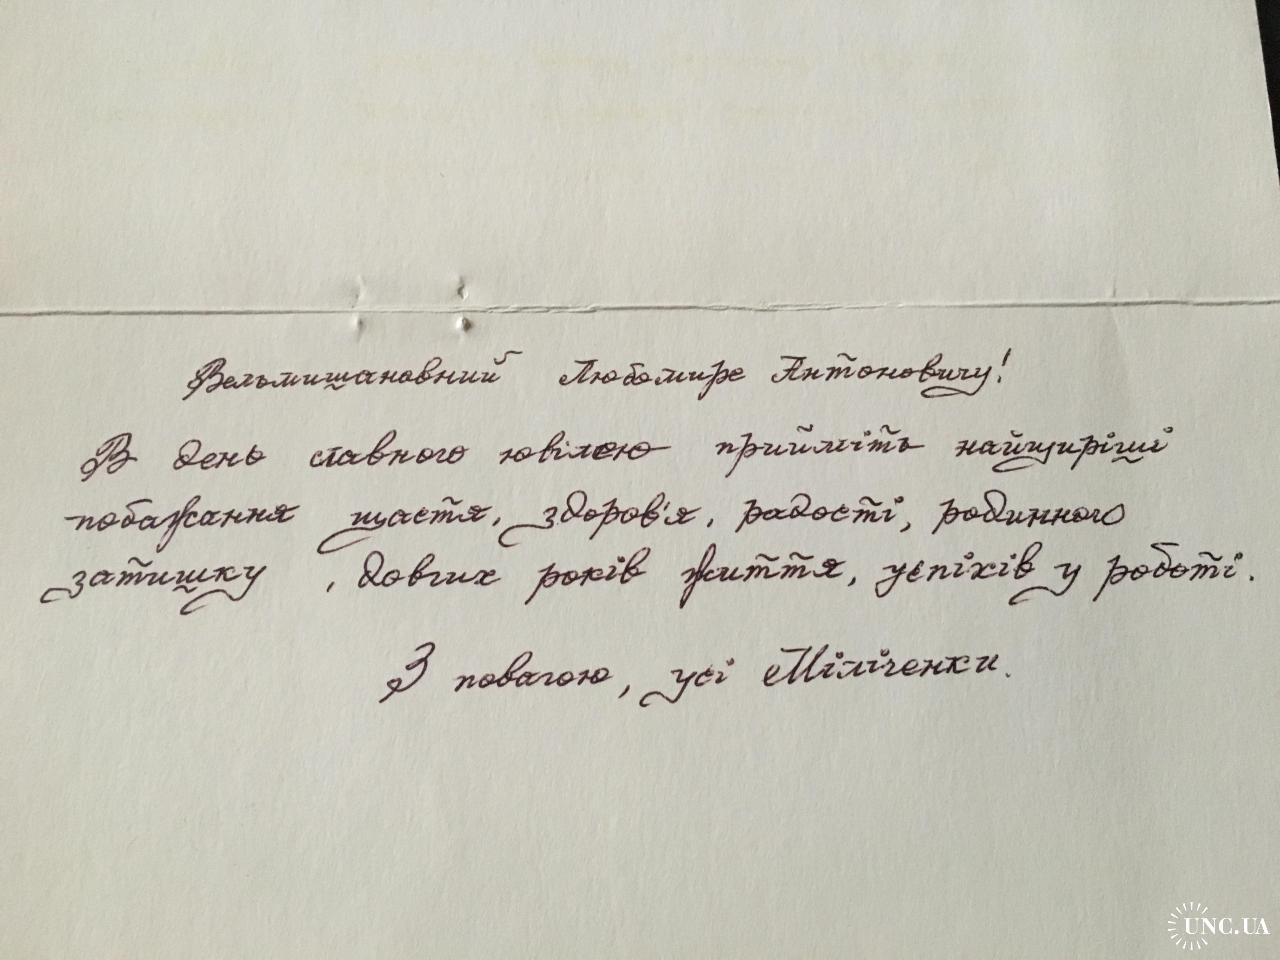 Вельмишановний Любомире Антоновичу!
В день славного ювілею прийміть найщиріші
побажання щастя, здоров'я, радості, родинного
затишку , довгих років життя, успіхів у роботі.
З повагою, усі Міліченки.
UNC.UA